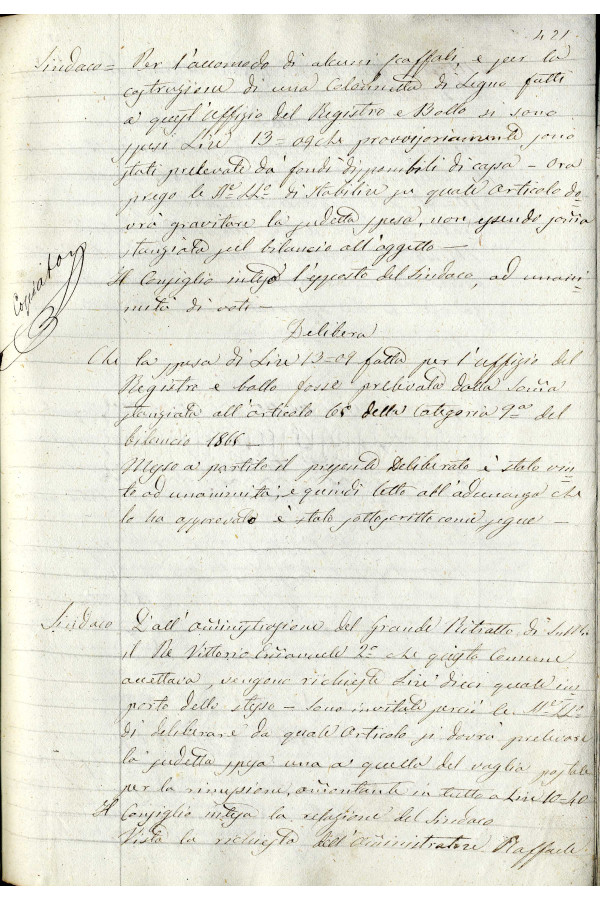 421.
Sindaco = Per l'accomodo di alcuni scaffali, e per la
costruzione di una colonnetta di Legno fatti
a quest'Uffizio del Registro e Bollo si sono
spesi Lire 13=09 che provvisoriamente sono
stati prelevate da' fondi disponibili di cassa - Ora
prego le di stabilire su quale Articolo do-
vrà gravitare la sudetta spesa, non essendo somma
stanziata nel bilancio all'oggetto —
Il Consiglio intesa l'esposto del Sindaco, ad unani-
mità di voti —
Delibera
Che la spesa di Lire 13=09 fatta per l'uffizio del
Registro e bollo fosse prelevata dalla somma
stanziata all'articolo 65 della Categoria 9ª del
bilancio 1866
Messo a partito il presente Deliberato è stato vin-
to ad unanimità; e quindi letto all'adunanza che
lo ha approvato è stato sottoscritto come segue —
Sindaco Dall'Amministrazione del Grande Ritratto di
il Re Vittorio Emanuele 2º che questo Comune
accettava, vengono richieste Lire dieci quale im-
porto dello stesso - Sono invitate perciò le
di deliberare da quale Articolo si dovrà prelevare
la sudetta spesa una a quella del vaglia postale
per la rimessione, ammontante in tutto a Lire 10=40
Il Consiglio intesa la relazione del Sindaco
Vista la richiesta dell'Amministratore Raffaele